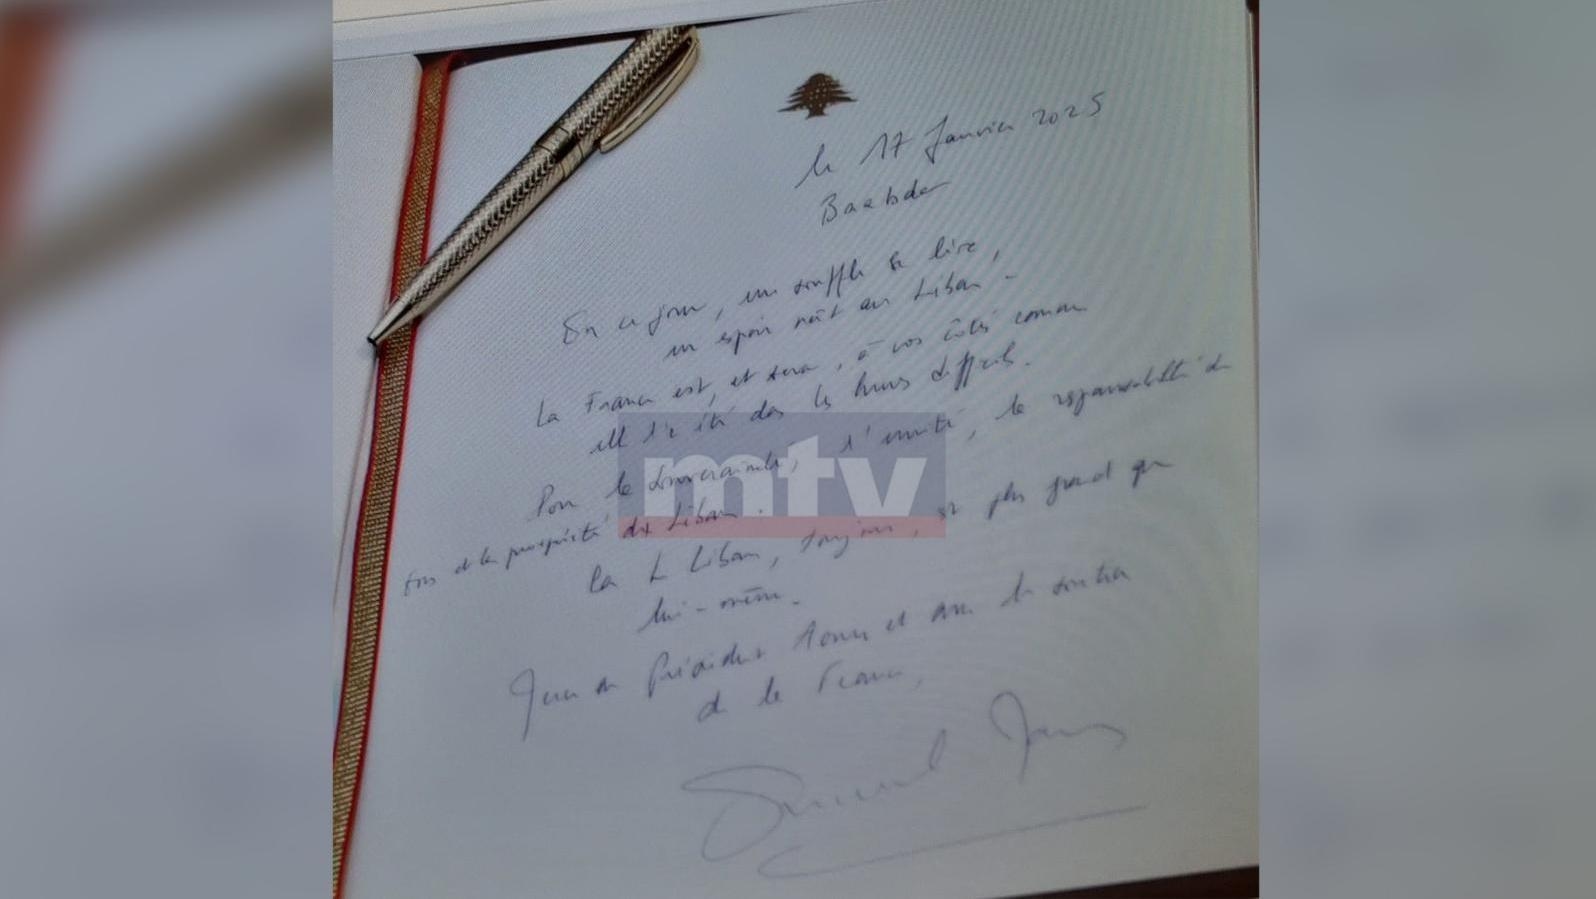 le 17 Janvier 2025
Baabda
En ce jour, un souffle se lève,
un espoir naît au Liban.
La France est, et sera, à vos côtés comme
elle l'a été dans les heures difficiles.
Pour la souveraineté, l'unité, la responsabilité de
tous et la prospérité du Liban.
Car le Liban, toujours, est plus grand que
lui-même.
au Président Aoun et avec le soutien
de la France,
Emmanuel Macron
mtv